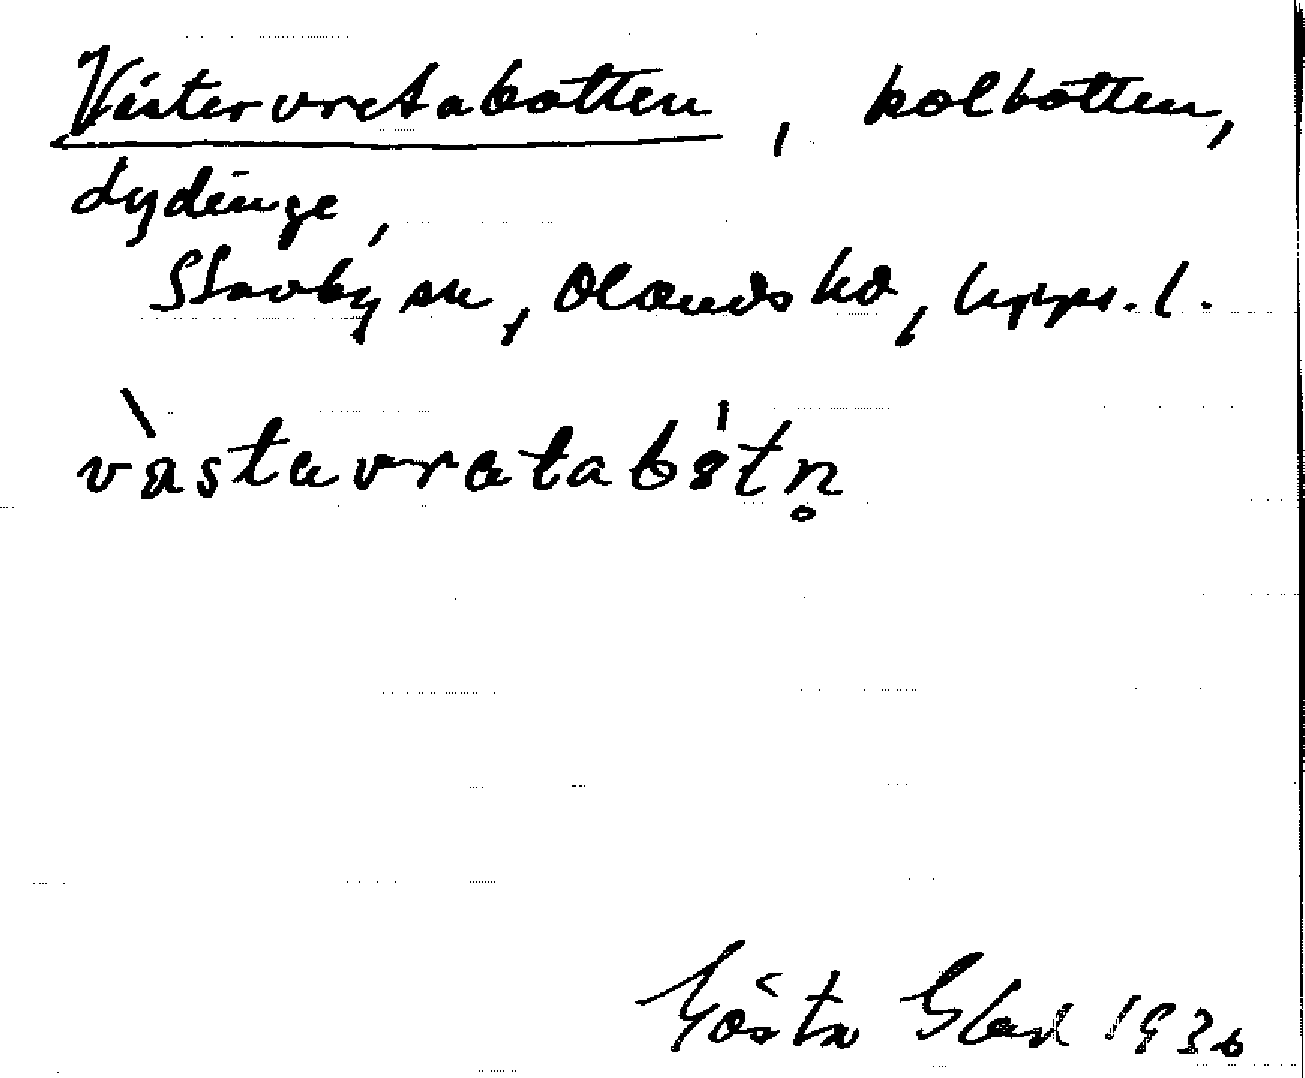 Västervretabotten, kolbotten,
Lydinge,
Stavby sn, Olands hd, Upps. l.
vàstavratabåtn̥
Gösta Blad 1936